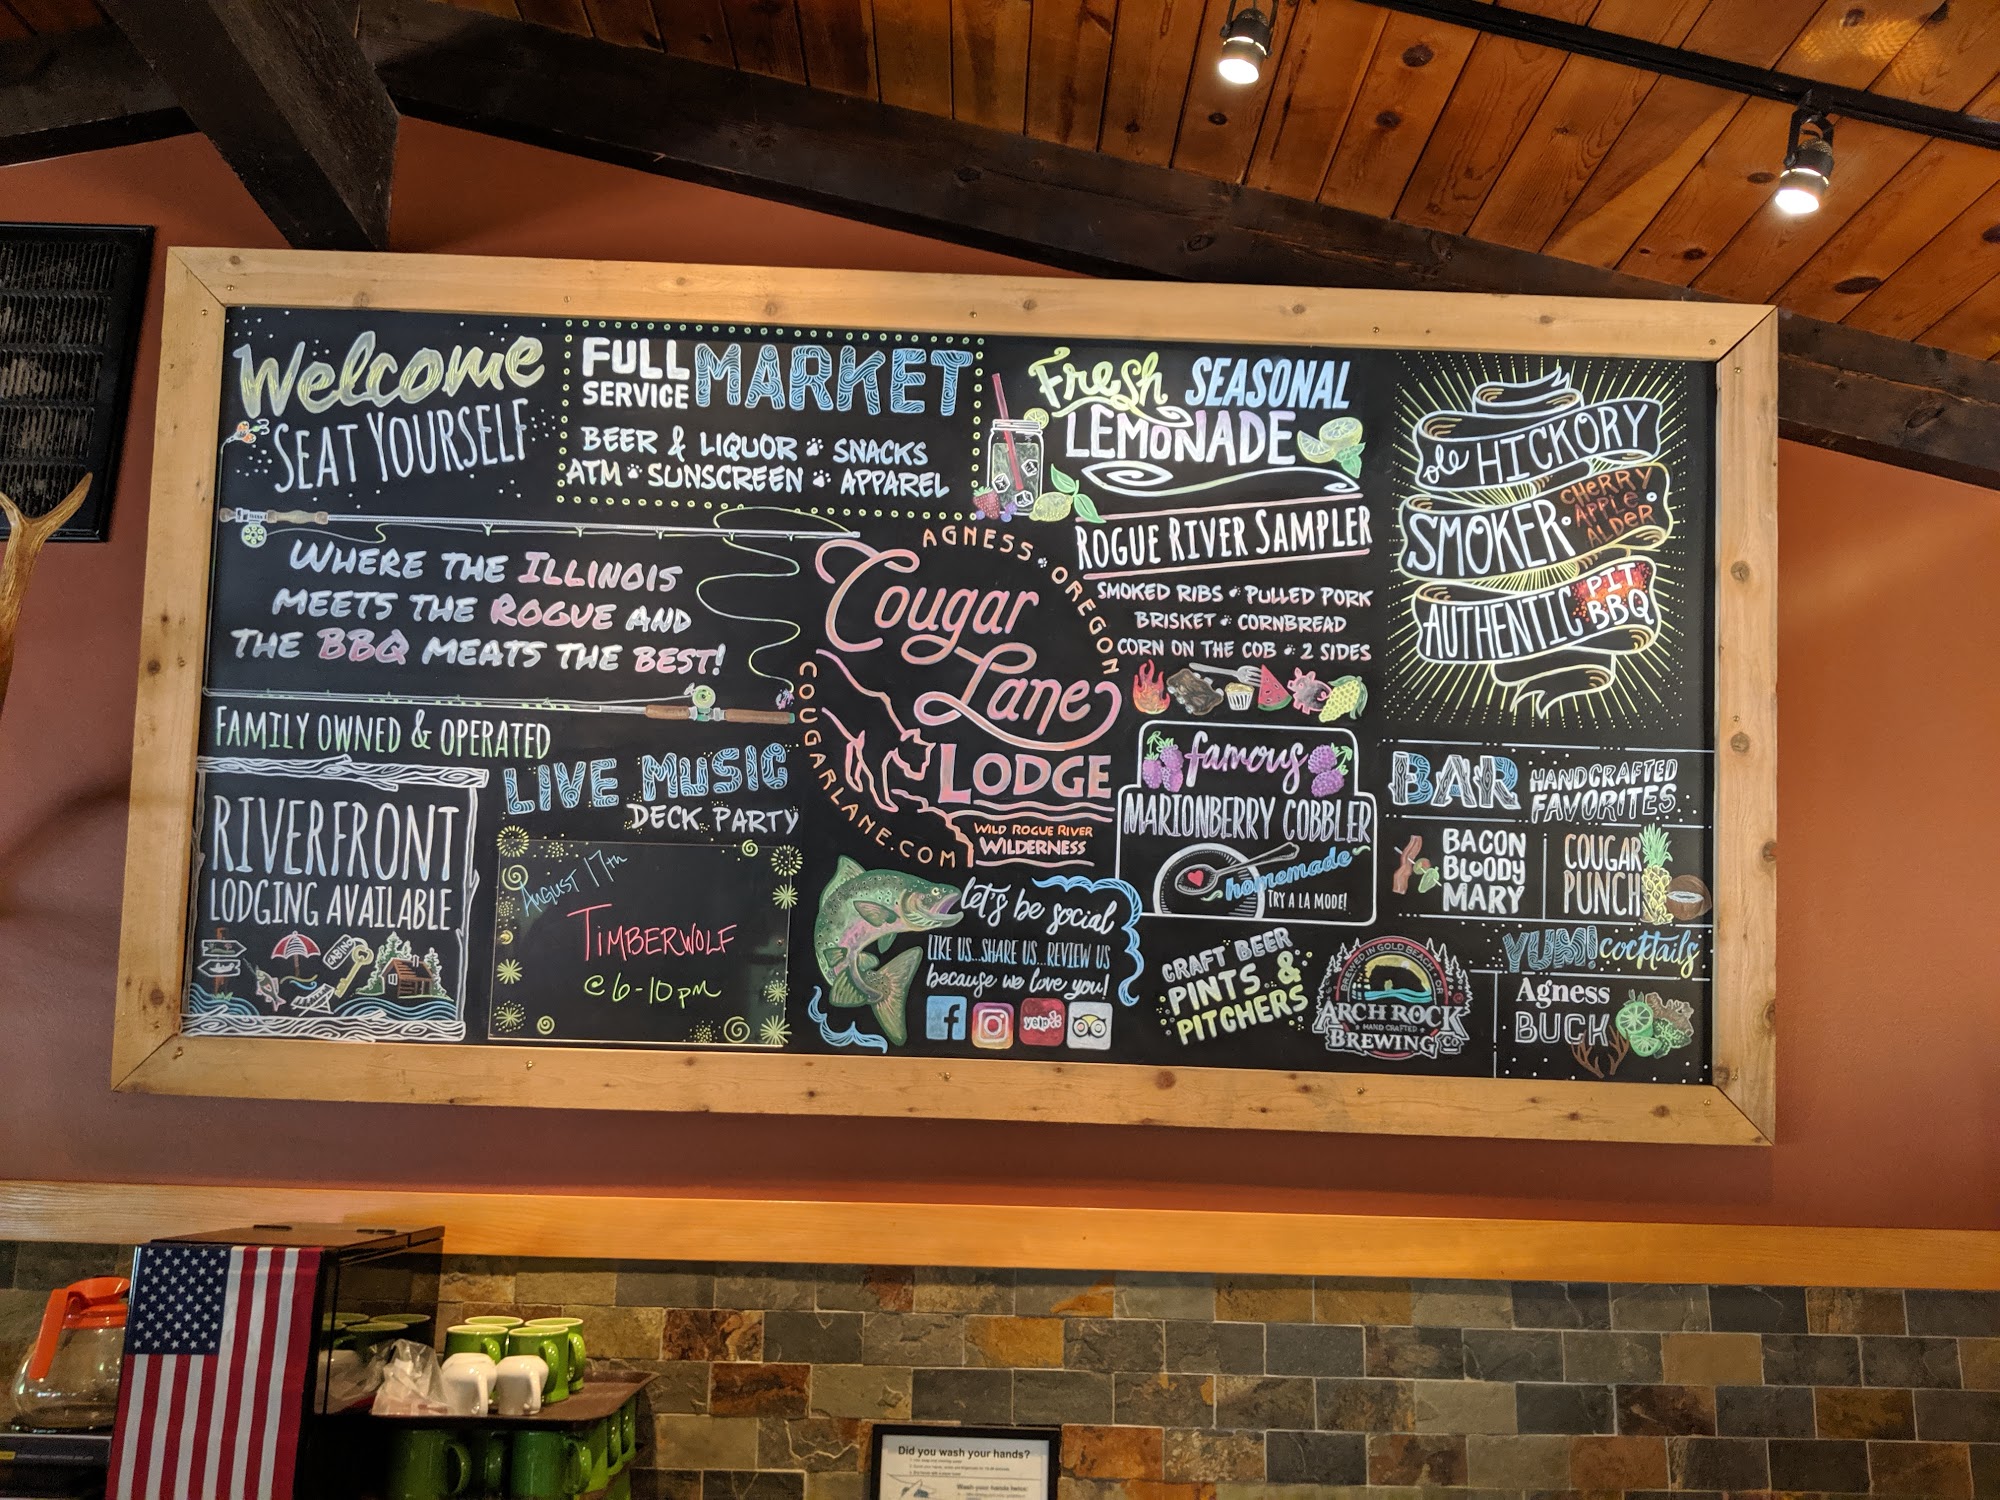 Welcome
SEAT YOURSELF
FULL
SERVICE
MARKET
BEER & LIQUOR SNACKS
ATM SUNSCREEN APPAREL
Fresh SEASONAL
LEMONADE
ole HICKORY
SMOKER
CHERRY
APPLE
ALDER
AUTHENTIC
PIT
BBQ
WHERE THE ILLINOIS
MEETS THE ROGUE AND
THE BBQ MEATS THE BEST!
AGNESS OREGON
Cougar
Lane
LODGE
COUGARLANE.COM
WILD ROGUE RIVER
WILDERNESS
ROGUE RIVER SAMPLER
SMOKED RIBS PULLED PORK
BRISKET CORNBREAD
CORN ON THE COB 2 SIDES
FAMILY OWNED & OPERATED
RIVERFRONT
LODGING AVAILABLE
CABINS
LIVE MUSIC
DECK PARTY
AUGUST 17th
TIMBERWOLF
@ 6-10 pm
let's be social
LIKE US...SHARE US...REVIEW US
because we love you!
f
yelp
famous
MARIONBERRY COBBLER
homemade
TRY A LA MODE!
CRAFT BEER
PINTS &
PITCHERS
BREWED IN GOLD BEACH, OR
ARCH ROCK
HAND CRAFTED
BREWING CO
BAR
HANDCRAFTED
FAVORITES
BACON
BLOODY
MARY
COUGAR
PUNCH
YUM! cocktails
Agness
BUCK
Did you wash your hands?
Wash your hands twice: